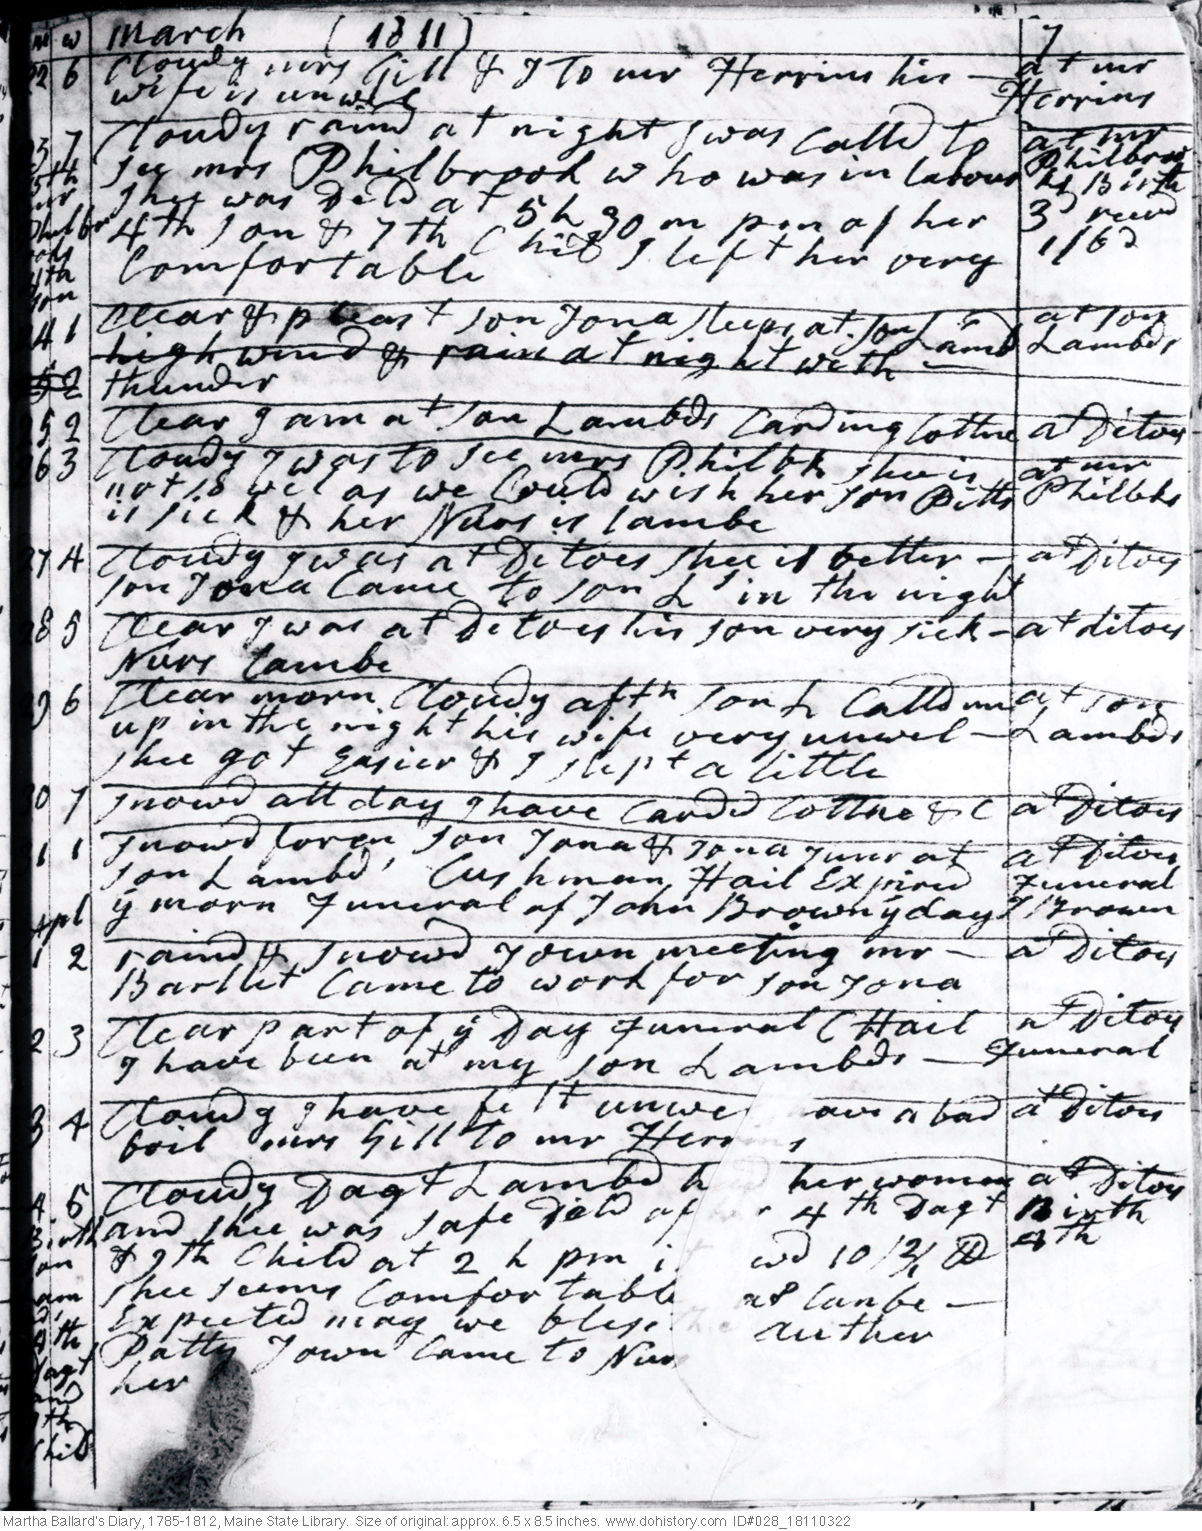 m w March (1811) 7
22 6 Cloudy mrs Gill & I to mr Herrins his — at mr
wife is unwel Herrins
23 7 Cloudy raind at night I was Calld to at mr
see mrs Philbrook who was in labour Philbrook
shee was Deld at 5 h 30 m pm of her Birth
4th son & 7th Chid I left her very 3d recvd
Comfortable 1/6d
4th
son
24 1 Clear & pleast son Jona sleeps at son Lambd at son
high wind & rain at night with — Lambds
thunder
25 2 Clear I am at son Lambds Carding Cottne at Ditoes
26 3 Cloudy I was to see mrs Philbk shee is at mr
not so wel as we Could wish her son Pitts Philbks
is sick & her Nurs is lambe
27 4 Cloudy I was at Ditoes shee is better — at Ditoes
son Jona Came to son Ls in the night
28 5 Clear I was at Ditoes his son very sick — at ditoes
Nurs lambe
29 6 Clear morn Cloudy aftn son L Calld me at son
up in the night his wife very unwel — Lambds
shee got Easier & I slept a little
30 7 snowd all day I have Carded Cottne & C at Ditoes
31 1 snowd foren son Jona & Jona junr at at Ditoes
son Lambd, Cushman Hail Expired Funeral
ÿ morn Funeral of John Brown ÿ day J Brown
Apl
1 2 raind & snowd Town meeting mr — at Ditoes
Bartlet Came to work for son Jona
2 3 Clear part of ÿ Day Funeral C Hail at Ditoes
I have been at my son Lambds — Funeral
3 4 Cloudy I have felt unwe ave a bad at Ditoes
boil mrs Gill to mr Herrins
4 5 Cloudy Dagt Lambd h her women at Ditoes
and shee was safe Deld of her 4th Dagt Birth
& 9th Child at 2 h pm it wd 10 1/2 lb 4th
shee seems Comfortable as Can be —
Expected may we bless the Auther
Patty Town Came to Nurs
her
4th
Dagt
and
9th
Child
Martha Ballard's Diary, 1785-1812, Maine State Library. Size of original: approx. 6.5 x 8.5 inches. www.dohistory.com ID#028_18110322